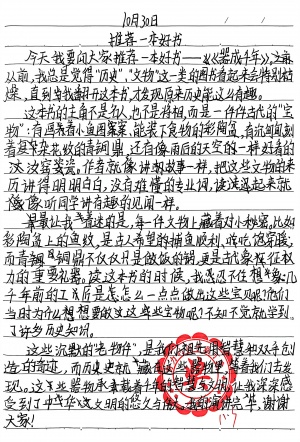 10月30日
推荐一本好书
今天我要向大家推荐一本好书——《器成千年》,之前
以前,我总是觉得"历史""文物"这一类的图书看起来会特别枯
燥,直到当我翻开这本书,才发现原来历史能这么有趣。
这本书的主角不是名人,也不是将相,而是一件件古代的"宝
物":有画着小鱼图案,能装下食物的彩陶盆,有沉甸甸刻
着花花的青铜鼎,还有像雨后的天空的一样好看的
汝窑瓷瓷。作者就像讲故事一样,把这些文物的来
历讲得明明白白,没有难懂的专业词,读起来就
像听同学讲有趣的见闻一样。
最让我着迷的是,每一件文物上藏着对小秘密,比如
彩陶盆上的鱼纹,是古人希望的捕鱼顺利、或吃饱穿暖;
而青铜鼎不仅仅只是做饭的锅,更是古代象征征权
力的重要礼器。读这本书的时候,我忍忍不住想象,几
千年前的工匠是怎么一点点做出这些宝贝呢?他们
当时为什么想要做这些宝物呢?不知不觉就学到
了许多历史知识。
这些沉默的"老物件",是我们祖先用智慧和双手创
造的奇迹,而历史就藏在这些器物里,等着我们去发
现。这些器物承载着千年的智慧与文明,让我深深感
受到了中华文明的悠久与
大家!